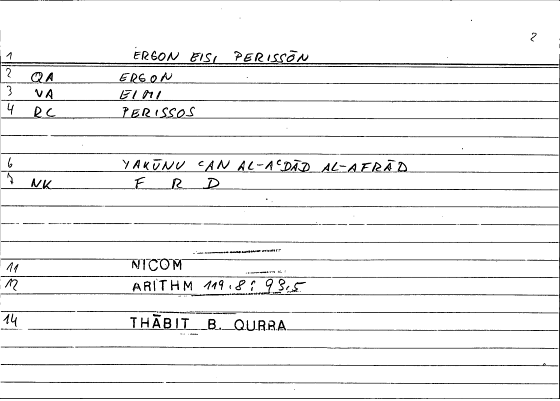 2
1 ERGON EISI PERISSŌN
2 QA ERGON
3 VA EIMI
4 RC PERISSOS
6 YAKŪNU ʿAN AL-AʿDĀD AL-AFRĀD
7 NK F R D
11 NICOM
12 ARITHM 119.8; 93.5
14 THĀBIT B. QURRA